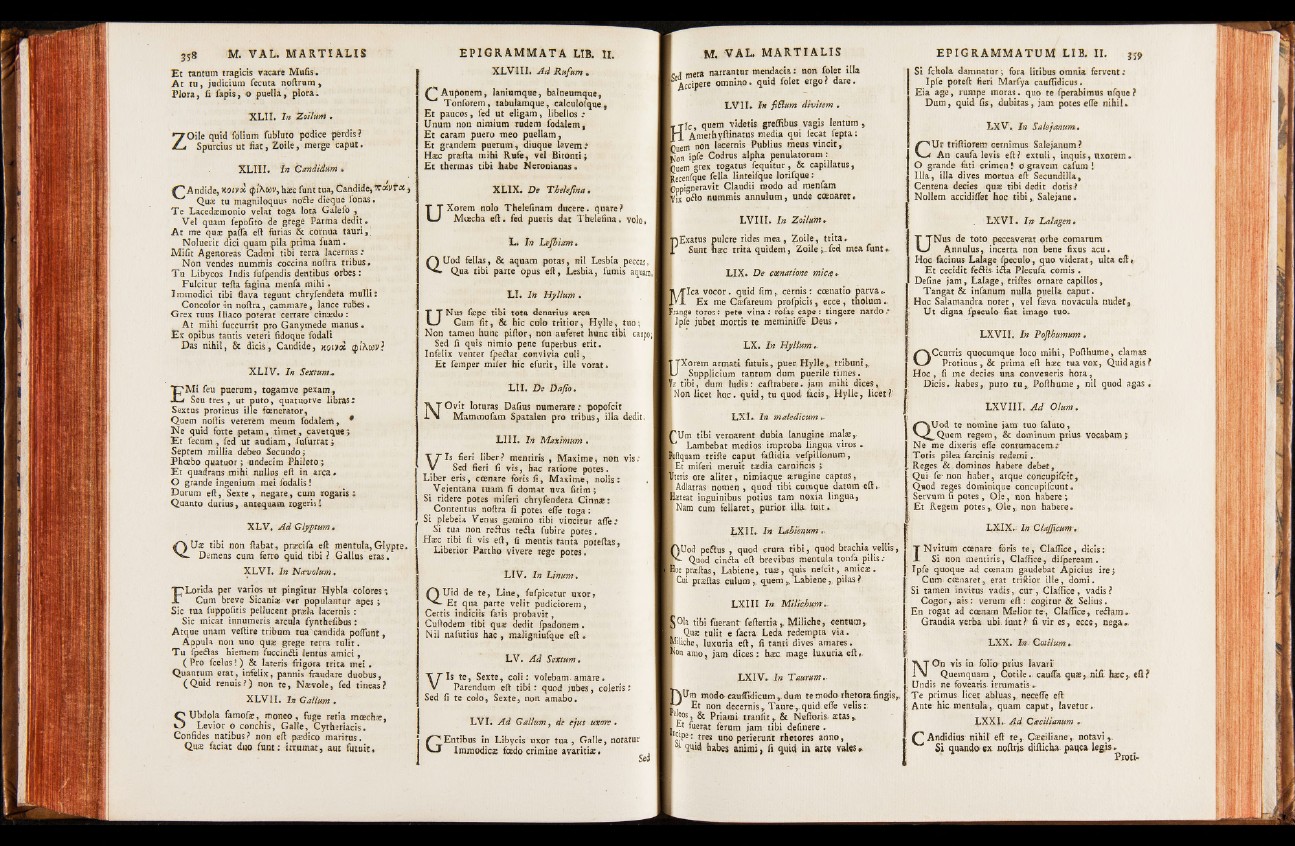 358 M. VAL. MARTIALIS
Et tantum tragicis vacare Muſis.
At tu, judicium ſecuta noſtrum,
Plora, ſi ſapis, o puella, plora.
XLII. In Zoilum.
ZOile quid ſolium ſubluto podice perdis?
Spurcius ut fiat, Zoile, merge caput.
XLIII. In Candidum.
CAndide, κοινὰ φίλων, hæc ſunt tua, Candide, πάντα,
Quæ tu magniloquus nocte dieque ſonas.
Te Lacedæmonio velat toga lota Galeſo,
Vel quam ſepoſito de grege Parma dedit.
At me quæ paſſa eſt furias & cornua tauri,
Noluerit dici quam pila prima ſuam.
Miſit Agenoreas Cadmi tibi terra lacernas:
Non vendes nummis coccina noſtra tribus.
Tu Libycos Indis ſuſpendis dentibus orbes:
Fulcitur teſta fagina menſa mihi.
Immodici tibi flava tegunt chryſendeta mulli:
Concolor in noſtra, cammare, lance rubes.
Grex tuus Iliaco poterat certare cinædo:
At mihi ſuccurrit pro Ganymede manus.
Ex opibus tantis veteri fidoque ſodali
Das nihil, & dicis, Candide, κοινὰ φίλων?
XLIV. In Sextum.
EMi ſeu puerum, togamve pexam,
Seu tres, ut puto, quatuorve libras:
Sextus protinus ille fœnerator,
Quem noſtis veterem meum ſodalem,
Ne quid forte petam, timet, cavetque;
Et ſecum, ſed ut audiam, ſuſurrat;
Septem millia debeo Secundo;
Phœbo quatuor; undecim Phileto;
Et quadrans mihi nullus eſt in arca.
O grande ingenium mei ſodalis!
Durum eſt, Sexte, negare, cum rogaris:
Quanto durius, antequam rogeris!
XLV. Ad Glyptum.
QUæ tibi non ſtabat, præciſa eſt mentula, Glypte.
Demens cum ferro quid tibi? Gallus eras.
XLVI. In Nævolum.
FLorida per varios ut pingitur Hybla colores;
Cum breve Sicaniæ ver populantur apes;
Sic tua ſuppoſitis pellucent præla lacernis:
Sic micat innumeris arcula ſyntheſibus:
Atque unam veſtire tribum tua candida poſſunt,
Appula non uno quæ grege terra tulit.
Tu ſpectas hiemem ſuccincti lentus amici,
(Pro ſcelus!) & lateris frigora trita mei.
Quantum erat, infelix, pannis fraudare duobus,
(Quid renuis?) non te, Nævole, ſed tineas?
XLVII. In Gallum.
SUbdola famoſæ, moneo, fuge retia mœchæ,
Levior o conchis, Galle, Cytheriacis.
Confides natibus? non eſt pædico maritus.
Quæ faciat duo ſunt: irrumat, aut futuit.
EPIGRAMMATA LIB. II.
XLVIII. Ad Rufum.
CAuponem, laniumque, balneumque,
Tonſorem, tabulamque, calculoſque,
Et paucos, ſed ut eligam, libellos:
Unum non nimium rudem ſodalem,
Et caram puero meo puellam,
Et grandem puerum, diuque levem:
Hæc præſta mihi Rufe, vel Bitonti;
Et thermas tibi habe Neronianas.
XLIX. De Theleſina.
UXorem nolo Theleſinam ducere. quare?
Mœcha eſt. ſed pueris dat Theleſina. volo.
L. In Lesbiam.
QUod fellas, & aquam potas, nil Lesbia peccas.
Qua tibi parte opus eſt, Lesbia, ſumis aquam.
LI. In Hyllum.
UNus ſæpe tibi tota denarius arca
Cum ſit, & hic culo tritior, Hylle, tuo;
Non tamen hunc piſtor, non auferet hunc tibi caupo;
Sed ſi quis nimio pene ſuperbus erit.
Infelix venter ſpectat convivia culi,
Et ſemper miſer hic eſurit, ille vorat.
LII. De Daſio.
NOvit loturas Daſius numerare: popoſcit
Mammoſam Spatalen pro tribus, illa dedit.
LIII. In Maximum.
VIs fieri liber? mentiris, Maxime, non vis:
Sed fieri ſi vis, hac ratione potes.
Liber eris, cœnare foris ſi, Maxime, nolis:
Vejentana tuam ſi domat uva ſitim;
Si ridere potes miſeri chryſendeta Cinnæ:
Contentus noſtra ſi potes eſſe toga:
Si plebeia Venus gemino tibi vincitur aſſe:
Si tua non rectus tecta ſubire potes.
Hæc tibi ſi vis eſt, ſi mentis tanta poteſtas,
Liberior Partho vivere rege potes.
LIV. In Linum.
QUid de te, Line, ſuſpicetur uxor,
Et qua parte velit pudiciorem,
Certis indiciis ſatis probavit,
Cuſtodem tibi quæ dedit ſpadonem.
Nil naſutius hac, maligniuſque eſt.
LV. Ad Sextum.
VIs te, Sexte, coli: volebam amare.
Parendum eſt tibi: quod jubes, coleris:
Sed ſi te colo, Sexte, non amabo.
LVI. Ad Gallum, de ejus uxore.
GEntibus in Libycis uxor tua, Galle, notatur
Immodicæ fœdo crimine avaritiæ.
Sed
M. VAL. MARTIALIS
Sed mera narrantur mendacia: non ſolet illa
Accipere omnino. quid ſolet ergo? dare.
LVII. In fictum divitem.
HIc, quem videtis greſſibus vagis lentum,
Amethyſtinatus media qui ſecat ſepta:
Quem non lacernis Publius meus vincit,
Non ipſe Codrus alpha penulatorum:
Quem grex togatus ſequitur, & capillatus,
Recenſque ſella linteiſque loriſque:
Oppigneravit Claudii modo ad menſam
Vix octo nummis annulum, unde cœnaret.
LVIII. In Zoilum.
PExatus pulcre rides mea, Zoile, trita.
Sunt hæc trita quidem, Zoile; ſed mea ſunt.
LIX. De cœnatione micæ.
MIca vocor. quid ſim, cernis: cœnatio parva.
Ex me Cæſareum proſpicis, ecce, tholum.
Frange toros: pete vina: roſas cape: tingere nardo:
Ipſe jubet mortis te meminiſſe Deus.
LX. In Hyllum.
UXorem armati futuis, puer Hylle, tribuni,
Supplicium tantum dum puerile times.
Væ tibi, dum ludis: caſtrabere. jam mihi dices,
Non licet hoc. quid, tu quod facis, Hylle, licet?
LXI. In maledicum.
CUm tibi vernarent dubia lanugine malæ,
Lambebat medios improba lingua viros.
Poſtquam triſte caput faſtidia veſpillonum,
Et miſeri meruit tædia carnificis;
Uteris ore aliter, nimiaque ærugine captus,
Adlatras nomen, quod tibi cumque datum eſt.
Hæreat inguinibus potius tam noxia lingua,
Nam cum fellaret, purior illa fuit.
LXII. In Labienum.
QUod pectus, quod crura tibi, quod brachia vellis,
Quod cincta eſt brevibus mentula tonſa pilis:
Hoc præſtas, Labiene, tuæ, quis neſcit, amicæ.
Cui præſtas culum, quem, Labiene, pilas?
LXIII In Milichum.
SOla tibi fuerant ſeſtertia, Miliche, centum,
Quæ tulit e ſacra Leda redempta via.
Miliche, luxuria eſt, ſi tanti dives amares.
Non amo, jam dices: hæc mage luxuria eſt.
LXIV. In Taurum.
DUm modo cauſſidicum, dum te modo rhetora fingis,
Et non decernis, Taure, quid eſſe velis:
Peleos, & Priami tranſit, & Neſtoris ætas,
Et fuerat ſerum jam tibi deſinere.
Incipe: tres uno perierunt rhetores anno,
Si quid habes animi, ſi quid in arte vales.
EPIGRAMMATUM LIB. II. 359
Si ſchola damnatur; fora litibus omnia fervent:
Ipſe poteſt fieri Marſya cauſſidicus.
Eia age, rumpe moras. quo te ſperabimus uſque?
Dum, quid ſis, dubitas, jam potes eſſe nihil.
LXV. In Salejanum.
CUr triſtiorem cernimus Salejanum?
An cauſa levis eſt? extuli, inquis, uxorem.
O grande fati crimen! o gravem caſum!
Illa, illa dives mortua eſt Secundilla,
Centena decies quæ tibi dedit dotis?
Nollem accidiſſet hoc tibi, Salejane.
LXVI. In Lalagen.
UNus de toto peccaverat orbe comarum
Annulus, incerta non bene fixus acu.
Hoc facinus Lalage ſpeculo, quo viderat, ulta eſt,
Et cecidit ſectis icta Plecuſa comis.
Deſine jam, Lalage, triſtes ornare capillos,
Tangat & inſanum nulla puella caput.
Hoc Salamandra notet, vel ſæva novacula nudet,
Ut digna ſpeculo fiat imago tuo.
LXVII. In Poſthumum.
OCcurris quocumque loco mihi, Poſthume, clamas
Protinus, & prima eſt hæc tua vox, Quid agis?
Hoc, ſi me decies una conveneris hora,
Dicis. habes, puto tu, Poſthume, nil quod agas.
LXVIII. Ad Olum.
QUod te nomine jam tuo ſaluto,
Quem regem, & dominum prius vocabam;
Ne me dixeris eſſe contumacem:
Totis pilea ſarcinis redemi.
Reges & dominos habere debet,
Qui ſe non habet, atque concupiſcit,
Quod reges dominique concupiſcunt.
Servum ſi potes, Ole, non habere;
Et Regem potes, Ole, non habere.
LXIX. In Claſſicum.
INvitum cœnare foris te, Claſſice, dicis:
Si non mentiris, Claſſice, diſpeream.
Ipſe quoque ad cœnam gaudebat Apicius ire;
Cum cœnaret, erat triſtior ille, domi.
Si tamen invitus vadis, cur, Claſſice, vadis?
Cogor, ais: verum eſt: cogitur & Selius.
En rogat ad cœnam Melior te, Claſſice, rectam.
Grandia verba ubi ſunt? ſi vir es, ecce, nega.
LXX. In Cotilum.
NOn vis in ſolio prius lavari
Quemquam, Cotile. cauſſa quæ, niſi hæc, eſt?
Undis ne fovearis irrumatis.
Te primus licet abluas, neceſſe eſt
Ante hic mentula, quam caput, lavetur.
LXXI. Ad Cæcilianum.
CAndidius nihil eſt te, Cæciliane, notavi,
Si quando ex noſtris diſticha pauca legis.
Proti-